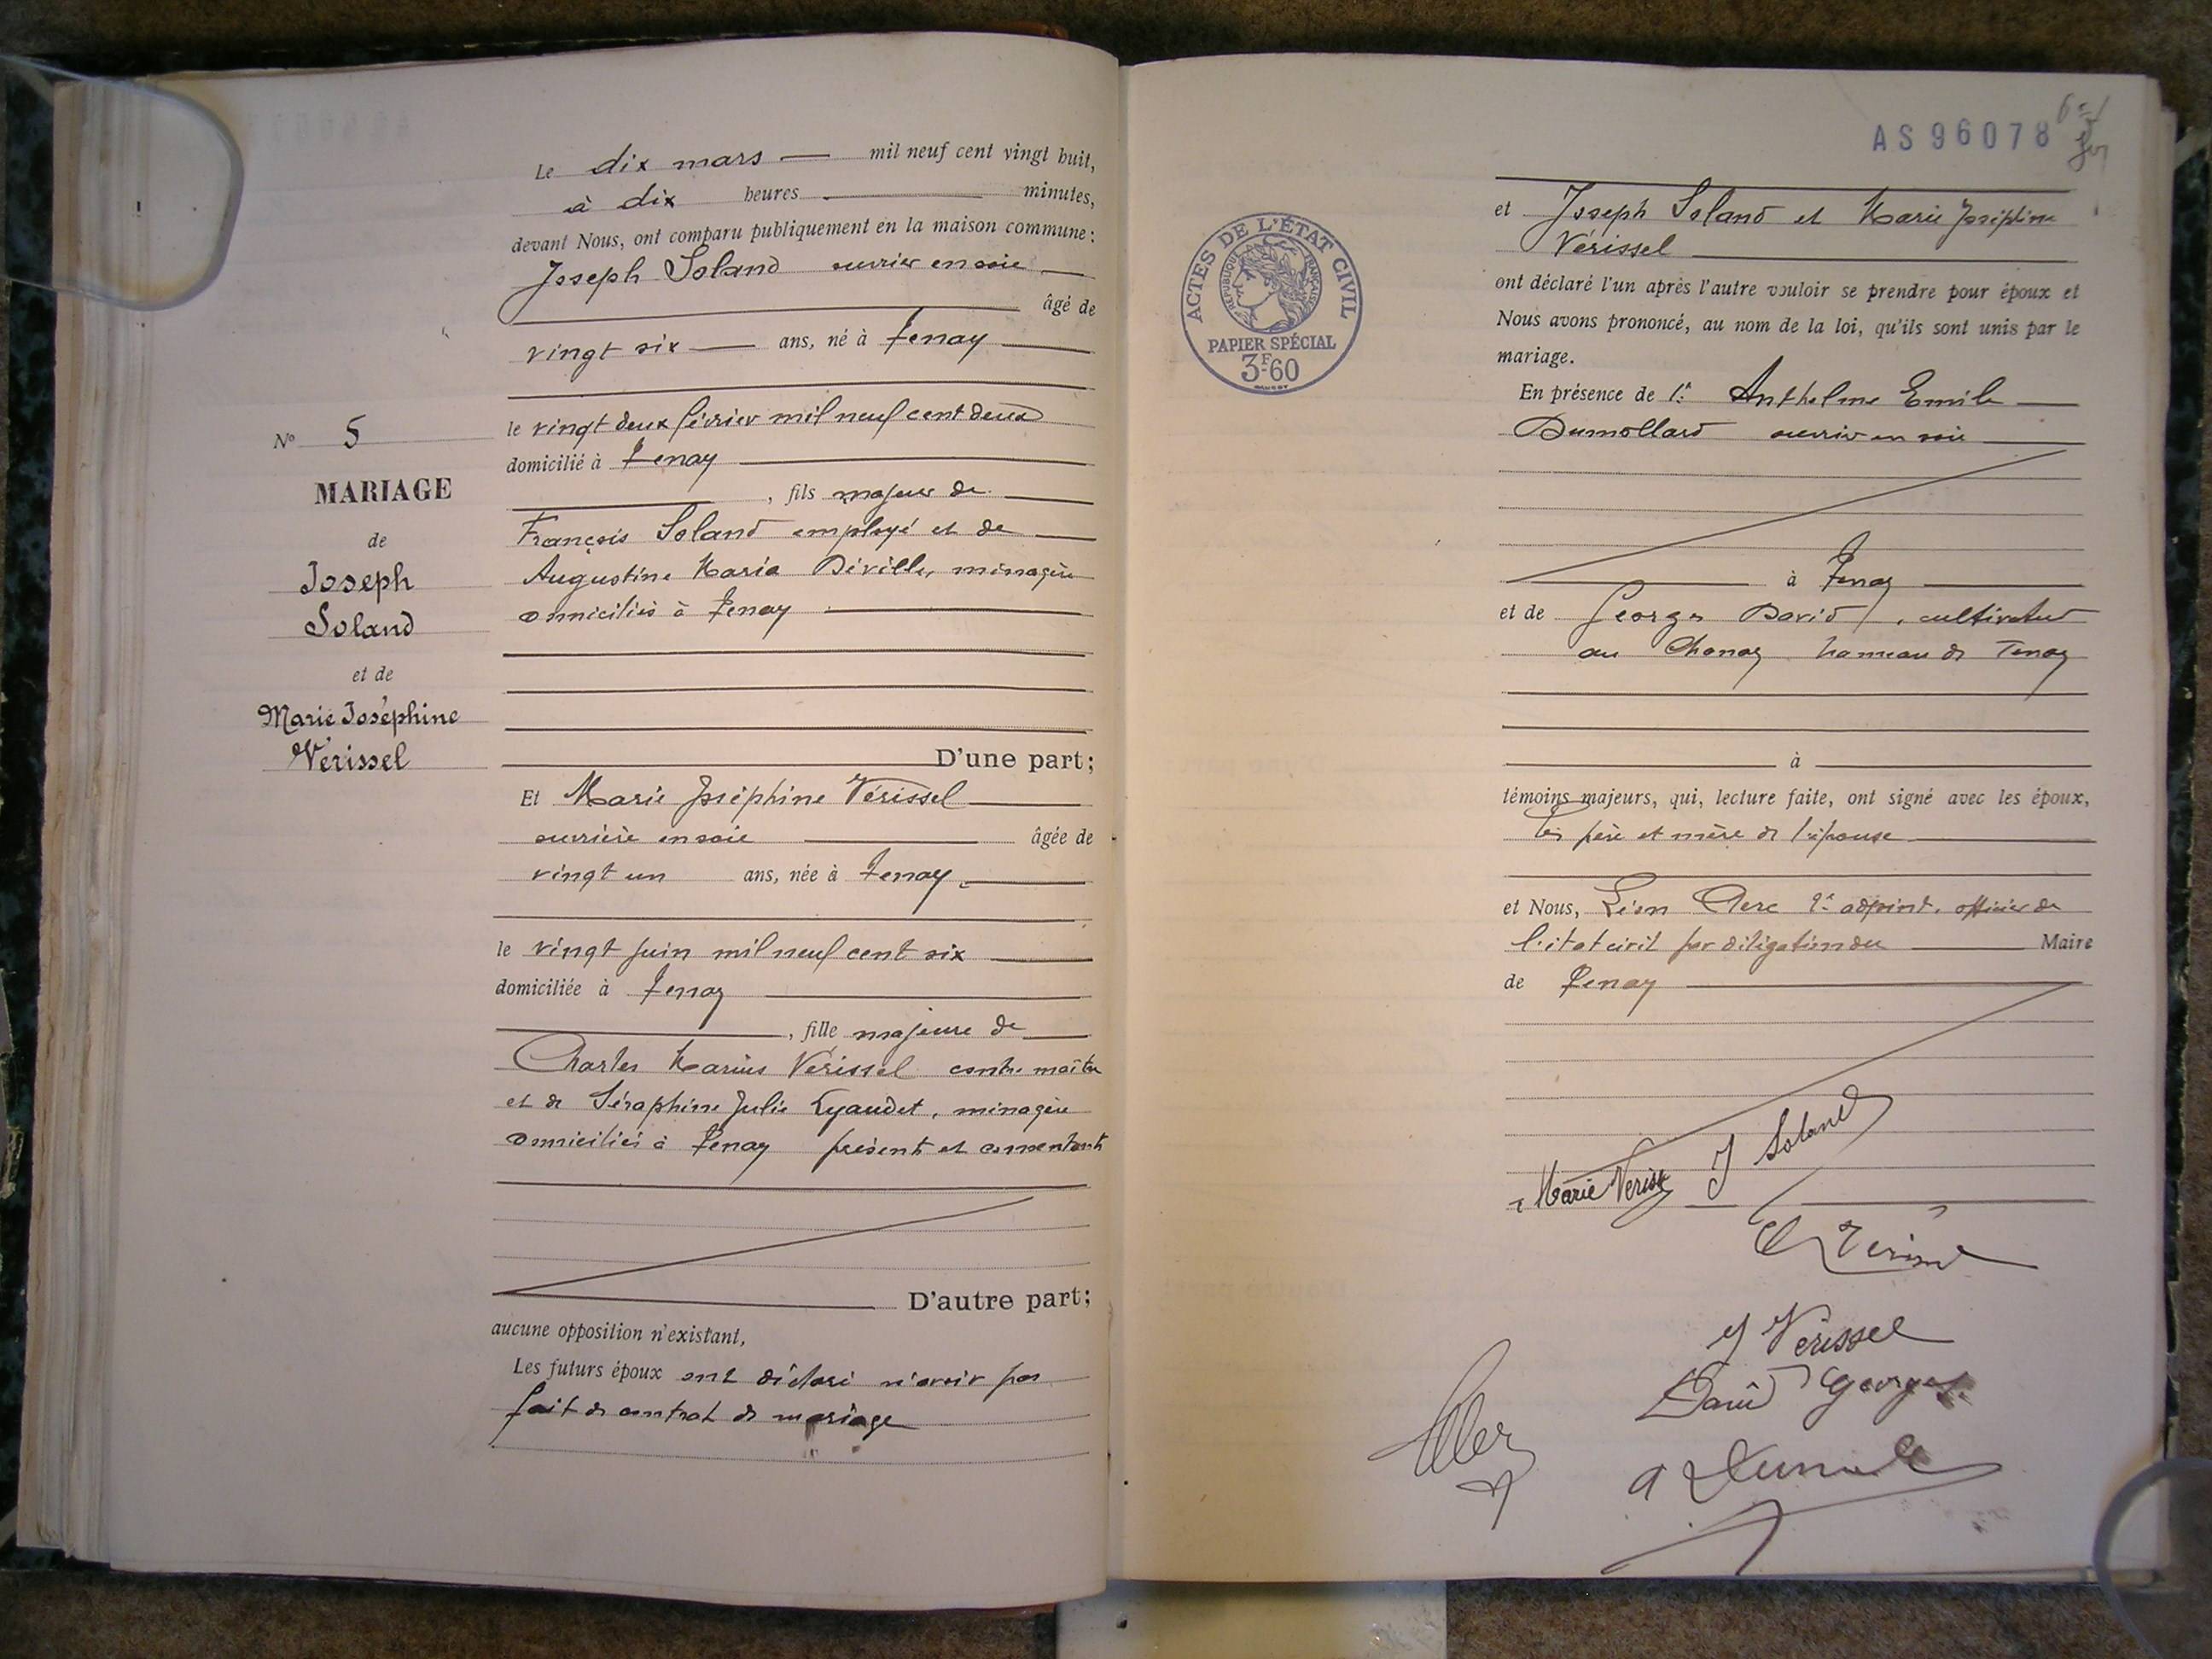 Le dix mars mil neuf cent vingt huit,
à dix heures minutes,
devant Nous, ont comparu publiquement en la maison commune :
Joseph Soland ouvrier en soie
âgé de
vingt six ans, né à Tenay
le vingt deux février mil neuf cent deux
domicilié à Tenay
, fils majeur de
François Soland employé et de
Augustine Maria ménagère
domiciliés à Tenay
D'une part;
N° 5
MARIAGE
de
Joseph
Soland
et de
Marie Joséphine
Vérissel
Et Marie Joséphine Vérissel
ouvrière en soie âgée de
vingt un ans, née à Tenay
le vingt juin mil neuf cent six
domiciliée à Tenay
, fille majeure de
Charles Marius Vérissel contre maître
et de Séraphine Julie Lyaudet, ménagère
domiciliés à Tenay présents et consentants
D'autre part;
aucune opposition n'existant,
Les futurs époux ont déclaré n'avoir pas
fait de contrat de mariage
AS96078
ACTES DE L'ÉTAT CIVIL
RÉPUBLIQUE FRANÇAISE
PAPIER SPÉCIAL
3F60
et Joseph Soland et Marie Joséphine
Vérissel
ont déclaré l'un après l'autre vouloir se prendre pour époux et
Nous avons prononcé, au nom de la loi, qu'ils sont unis par le
mariage.
En présence de Anthelme Emile
Dumollard ouvrier en soie
à Tenay
et de Georges David, cultivateur
au Chanay hameau de Tenay
à
témoins majeurs, qui, lecture faite, ont signé avec les époux,
les père et mère de l'épouse
et Nous, Léon Clerc 2e adjoint, officier de
l'état civil par délégation du Maire
de Tenay
J Soland
Marie
J Vérissel
David Georges